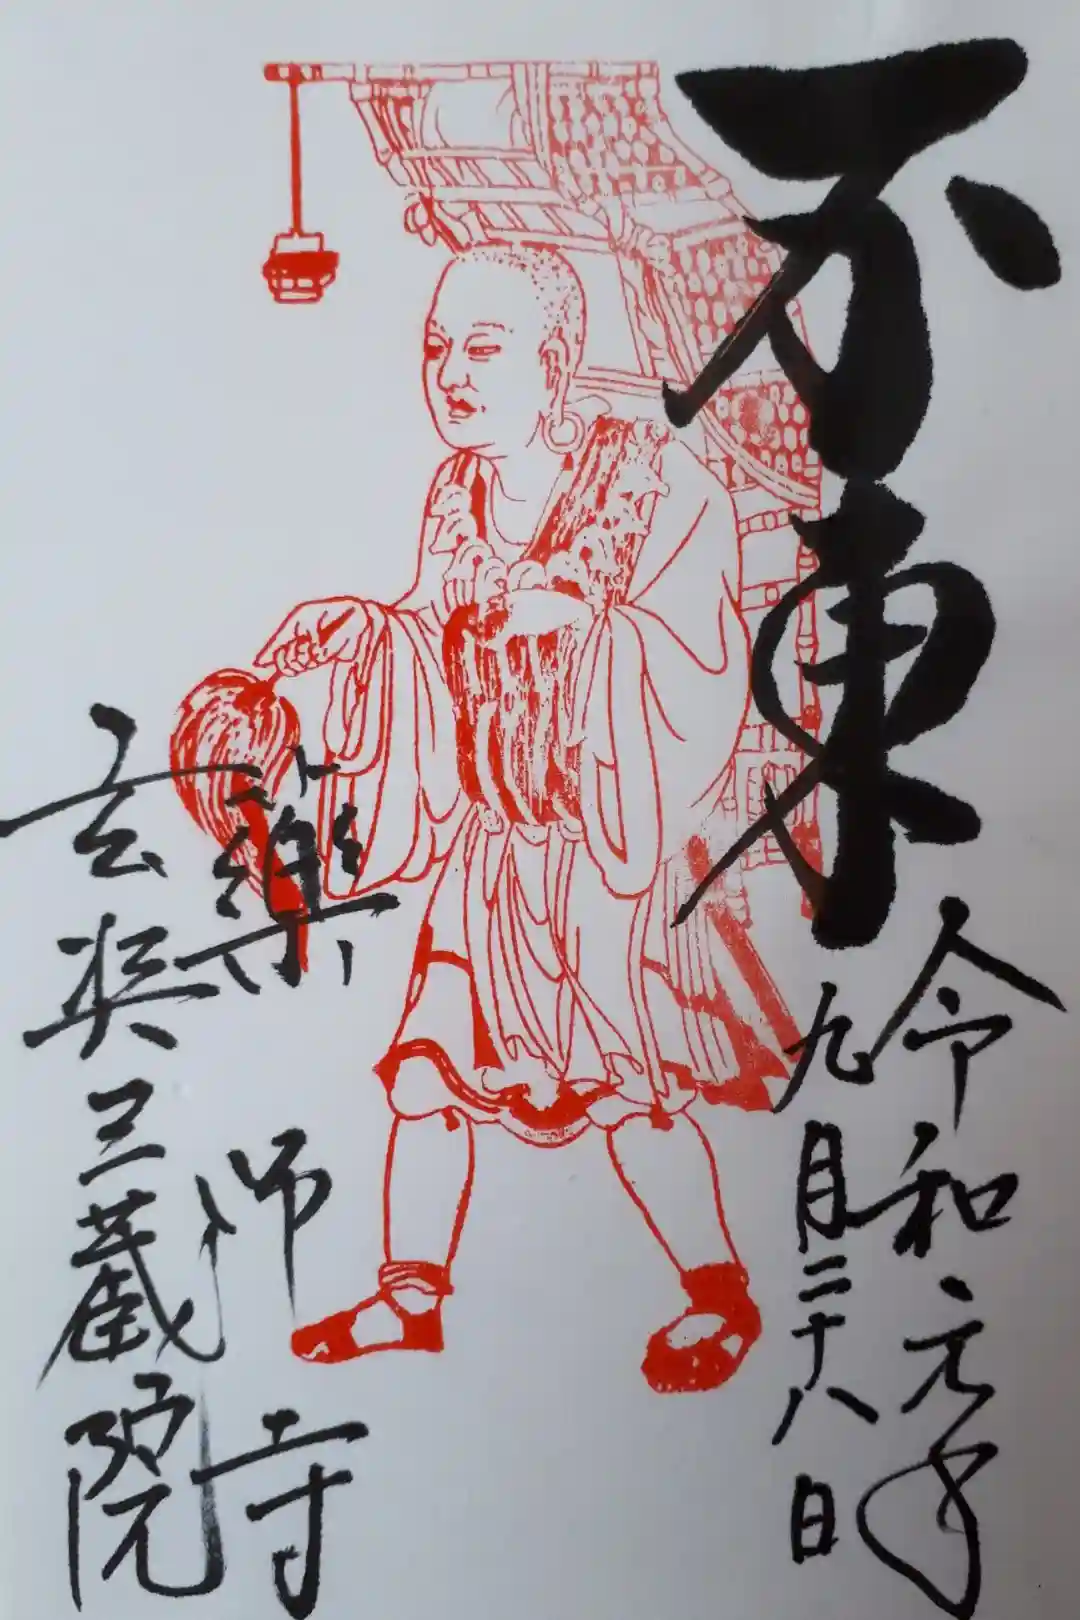 不東
令和元年
九月二十八日
藥師寺
玄奘三蔵院